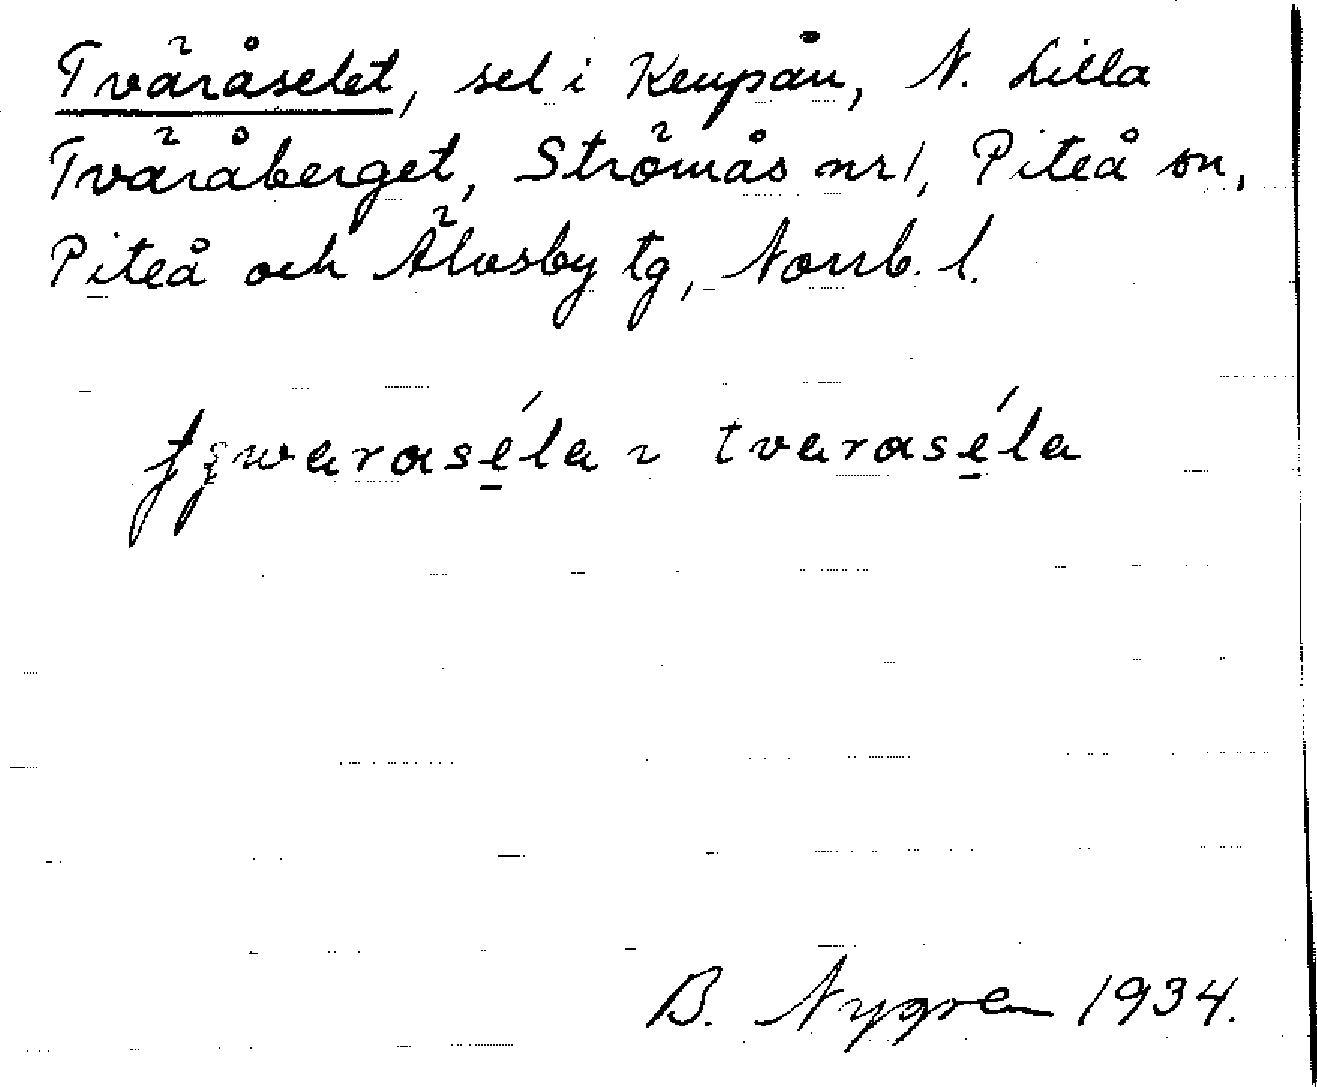 Tväråselet, sel i Keupån, N. Lilla
Tväråberget, Strömås nr 1, Piteå sn,
Piteå och Älvsby tg, Norrb. l.
tvaraséla
B. Nygren 1934.